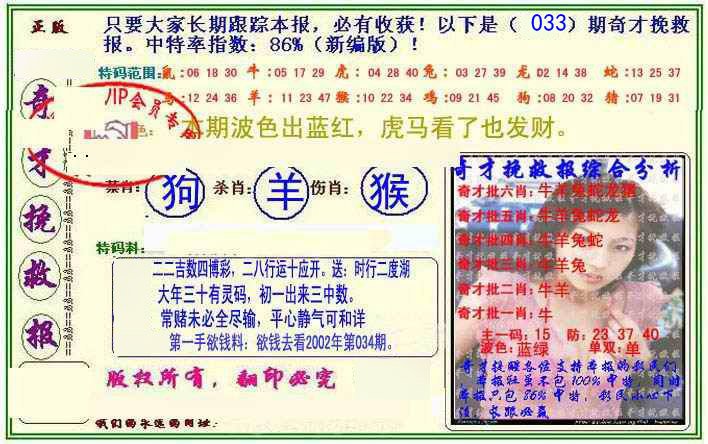 正版
只要大家长期跟踪本报，必有收获！以下是（ 033）期奇才挽救
报。中特率指数：86%（新编版）！
特码范围：鼠：06 18 30 牛：05 17 29 虎：04 28 40 兔：03 27 39 龙 D2 14 38 蛇：13 25 37
马：12 24 36 羊：11 23 47 猴：10 22 34 鸡：09 21 45 狗：08 20 32 猪：07 19 31
VIP会员专
色：本期波色出蓝红，虎马看了也发财。
奇才挽救报
禁肖：狗 杀肖：羊 伤肖：猴
特码料：
二二吉数四博彩，二八行运十应开。送：时行二度湖
大年三十有灵码，初一出来三中数。
常赌未必全尽输，平心静气可和详
第一手欲钱料：欲钱去看2002年第034期。
版权所有，翻印必究
我们的永远的网址：
奇才挽救报综合分析
奇才批六肖：牛羊兔蛇龙猪
奇才批五肖：牛羊兔蛇龙
奇才批四肖：牛羊兔蛇
奇才批三肖：牛羊兔
奇才批二肖：牛羊
奇才批一肖：牛
主一码：15 防：23 37 40
波色：蓝绿 单双：单
奇才提醒各位支持本报的彩民们
本报往虽不包100%中特，同时
本报只包86%中特，彩民小心下
注，长跟必赢